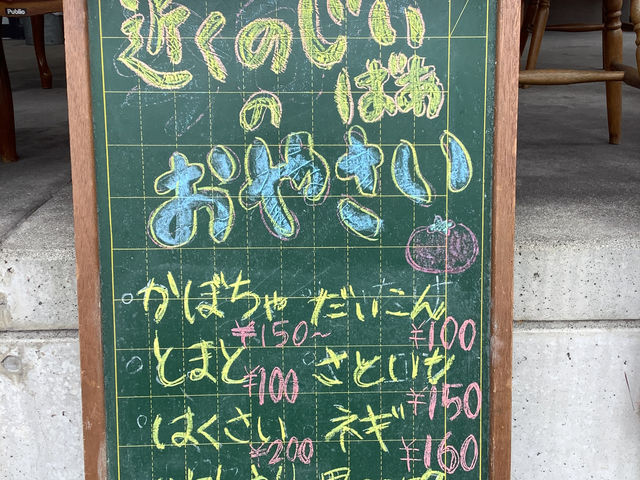 Public
近くのじぃ
ばあ
の
おやさい
かぼちゃ だいこん
¥150~ ¥100
とまと さといも
¥100 ¥150
はくさい ネギ
¥200 ¥160